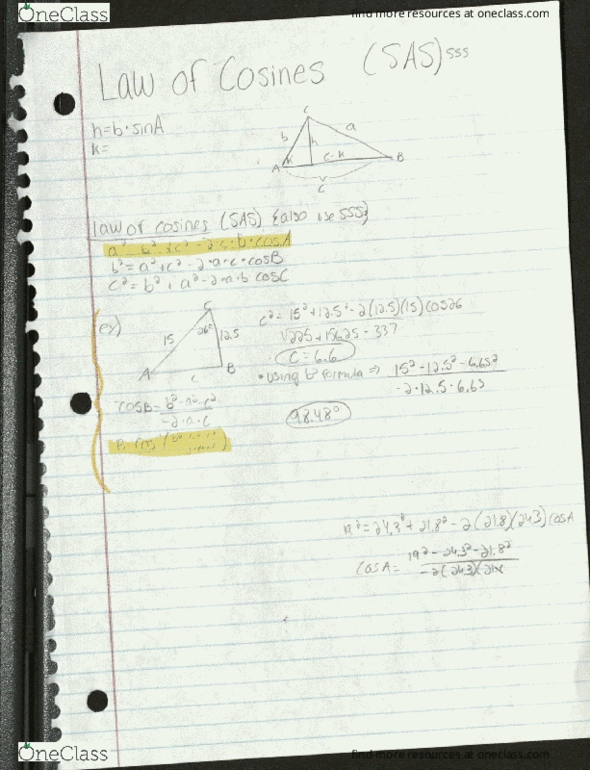 OneClass
find more resources at oneclass.com
Law of Cosines (SAS) SSS
h=b·sinA
k=
C
b
h
a
A
k
c-k
B
c
law of cosines (SAS) {also use SSS}
a² = b² + c² - 2·c·b·cosA
b² = a² + c² - 2·a·c·cosB
c² = b² + a² - 2·a·b cosC
ex)
C
15
26°
12.5
A
c
B
c² = 15² + 12.5² - 2(12.5)(15)cos26
√225+156.25-337
C = 6.6
• using b² formula ⇒ 15² - 12.5² - 6.65²
-2·12.5·6.65
98.48°
cosB = b² - a² - c²
-2·a·c
= 24.3² + 21.8² - 2(21.8)(24.3)cosA
cosA = 19² - 24.3² - 21.8²
-2(24.3)(21.8
OneClass
find more resources at oneclass.com